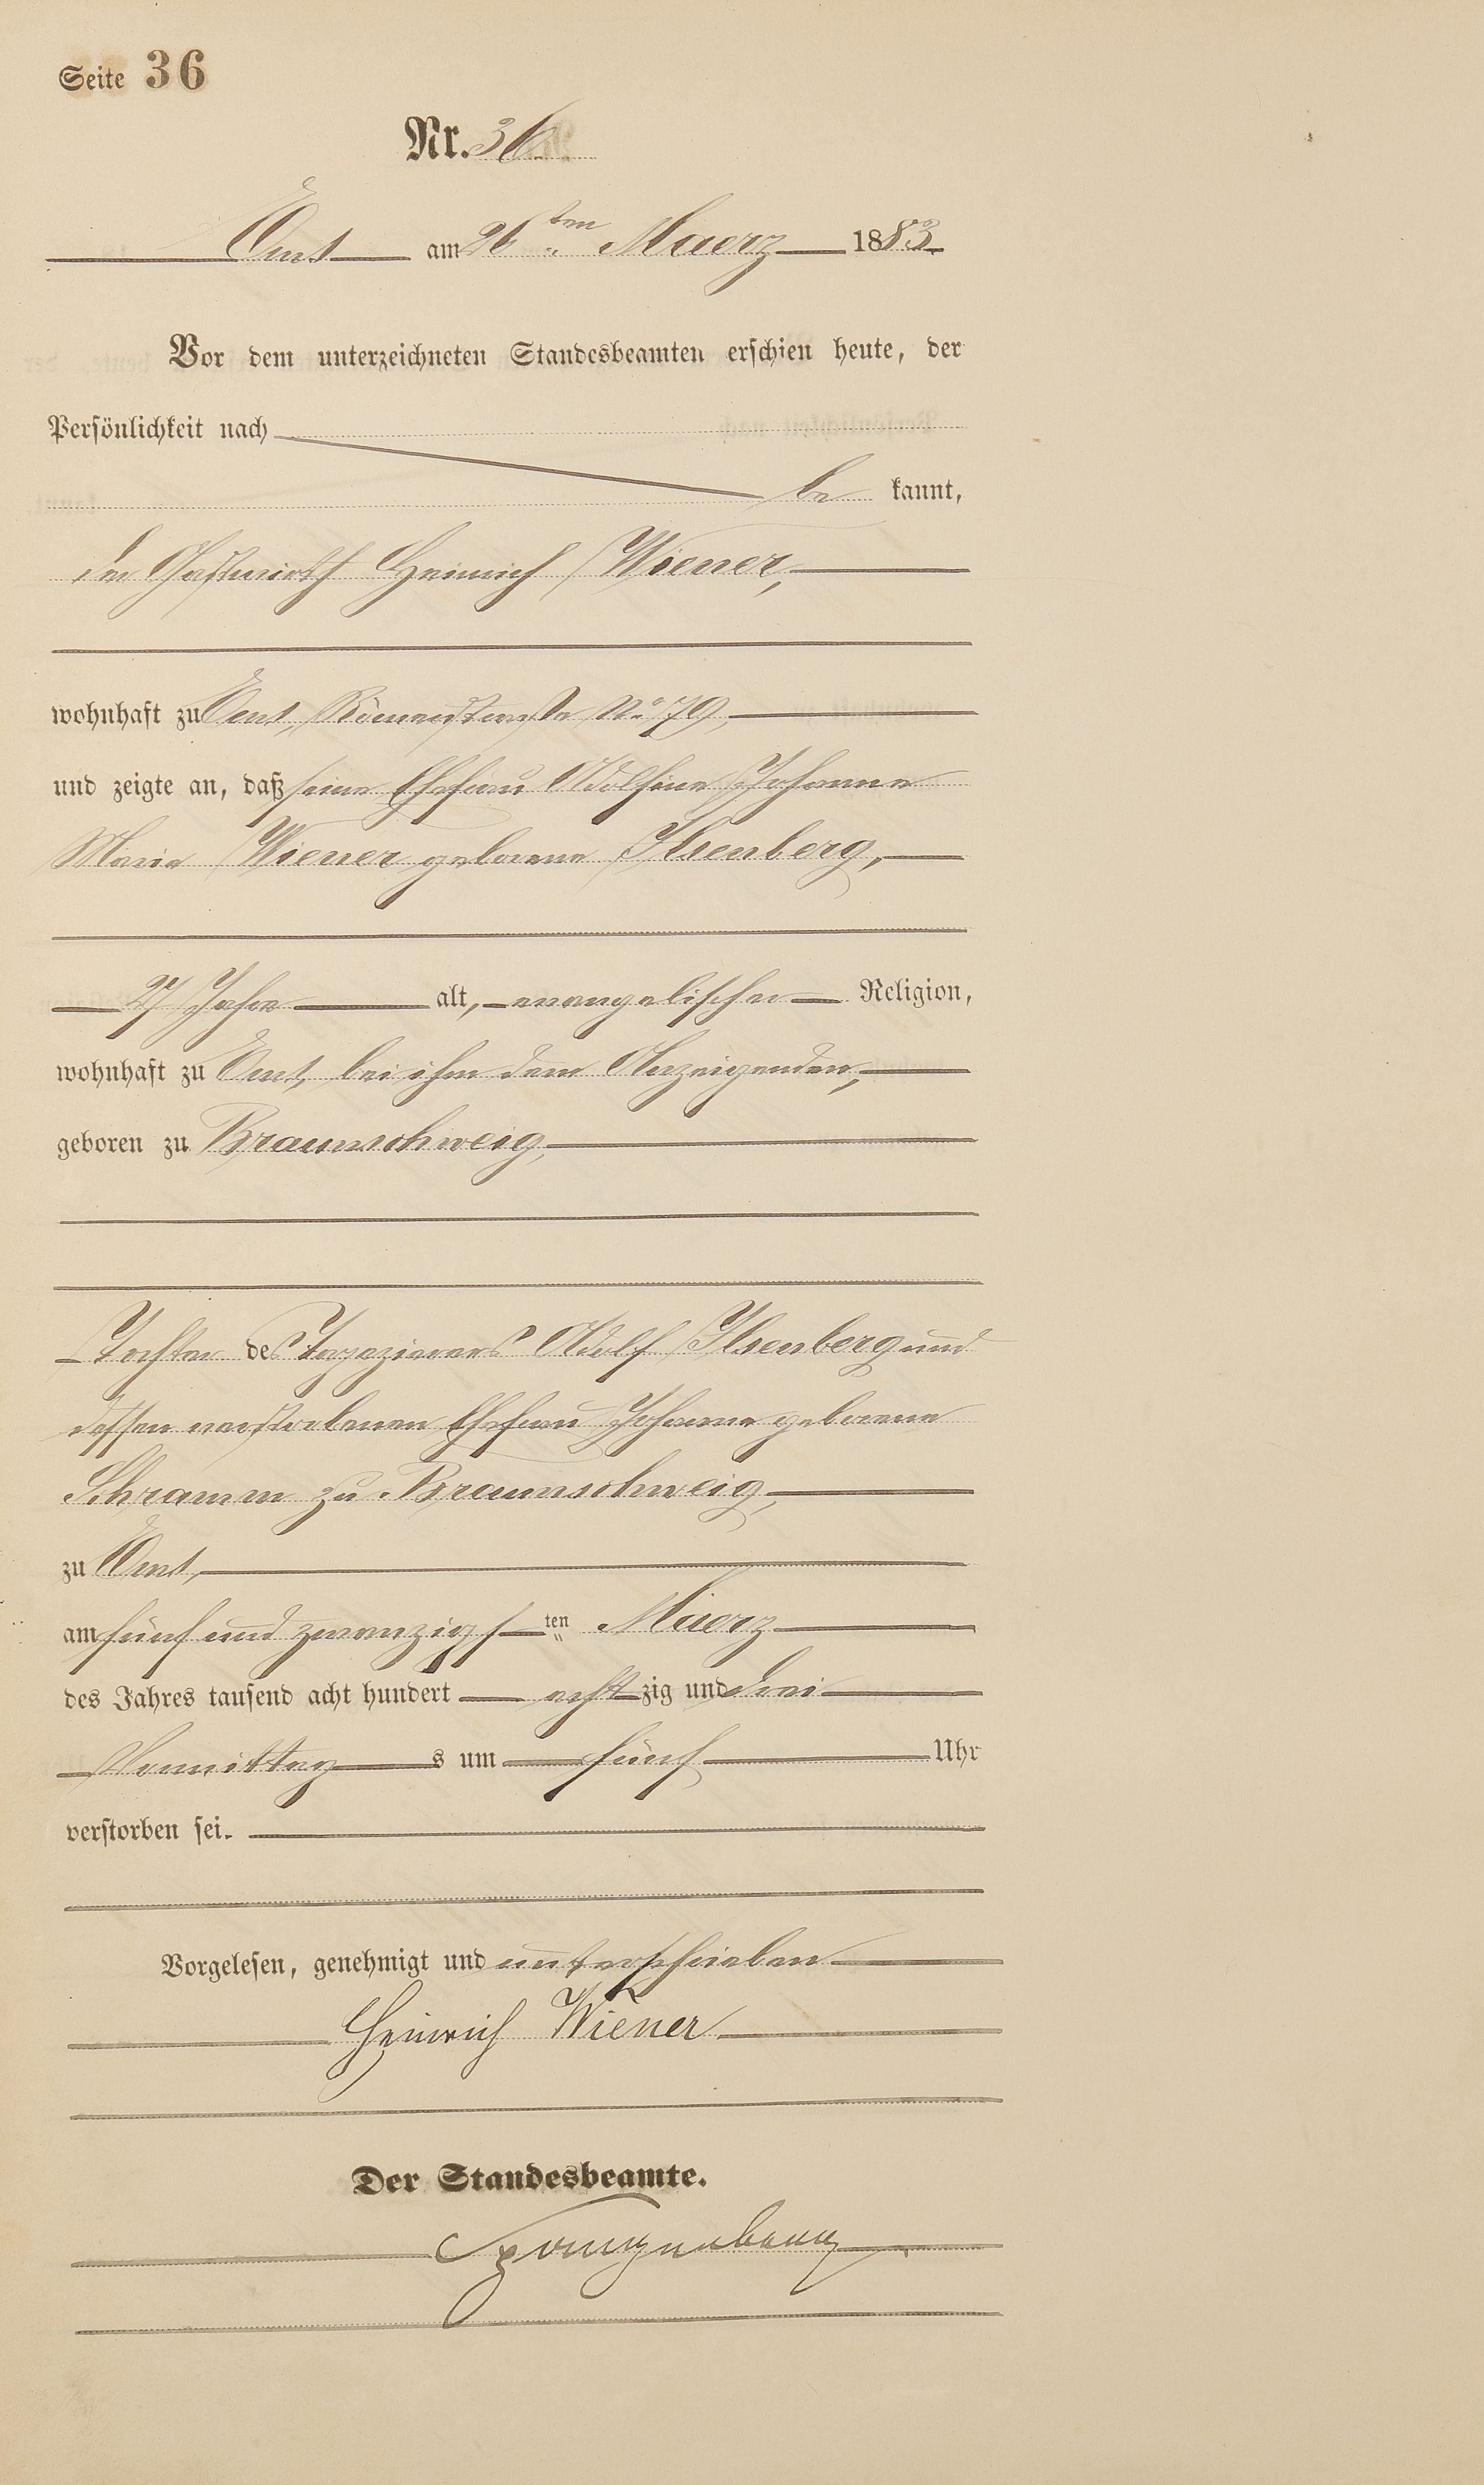 Seite 36
Nr. 36
Ems am 26ten Maerz 1883.
Vor dem unterzeichneten Standesbeamten erschien heute, der
Persönlichkeit nach
be kannt,
der Gastwirth Heinrich Wiener,
wohnhaft zu Ems, Römerstraße No 79,
und zeigte an, daß seine Ehefrau Adolfine Johanne
Marie Wiener geborene Ilsenberg,
27 Jahre alt, evangelischer Religion,
wohnhaft zu Ems, bei ihm dem Anzeigenden,
geboren zu Braunschweig,
Tochter des Tapezierers Adolf Ilsenberg und
dessen verstorbenen Ehefrau Johanne geborene
Schramm zu Braunschweig,
zu Ems,
am fünf und zwanzigsten Maerz
des Jahres tausend acht hundert achtzig und drei
Vormittags um fünf Uhr
verstorben sei.
Vorgelesen, genehmigt und unterschrieben
Heinrich Wiener
Der Standesbeamte.